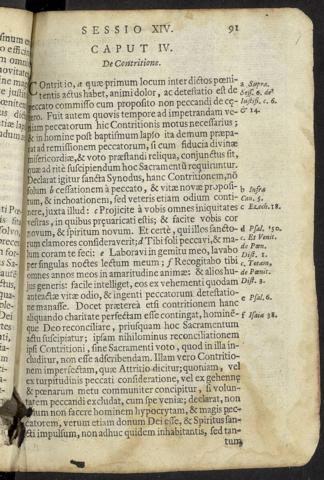 SESSIO XIV. 91
CAPUT IV.
De Contritione.
Contritio, a quæ primum locum inter dictos pœni-
tentis actus habet, animi dolor, ac detestatio est de
peccato commisso cum proposito non peccandi de cę-
tero. Fuit autem quovis tempore ad impetrandam ve-
niam peccatorum hic Contritionis motus necessarius;
& in homine post baptismum lapso ita demum præpa-
rat ad remissionem peccatorum, si cum fiducia divinæ
misericordiæ, & voto præstandi reliqua, conjunctus sit,
quæ ad ritè suscipiendum hoc Sacramentũ requiruntur.
Declarat igitur sancta Synodus, hanc Contritionem, nõ
solum b cessationem à peccato, & vitæ novæ proposi-
tum, & inchoationem, sed veteris etiam odium conti-
nere, juxta illud: c Projicite à vobis omnes iniquitates
vestras, in quibus prævaricati estis; & facite vobis cor
novum, & spiritum novum. Et certè, qui illos sancto-
rum clamores consideraverit; d Tibi soli peccavi, & ma-
lum coram te feci: e Laboravi in gemitu meo, lavabo
per singulas noctes lectum meum; f Recogitabo tibi
omnes annos meos in amaritudine animæ: & alios hu-
jus generis: facilè intelliget, eos ex vehementi quodam
anteactæ vitæ odio, & ingenti peccatorum detestatio-
ne manasse. Docet præterea etsi contritionem hanc
aliquando charitate perfectam esse contingat, hominé-
que Deo reconciliare, priusquam hoc Sacramentum
actu suscipiatur; ipsam nihilominus reconciliationem
ipsi Contritioni, sine Sacramenti voto, quod in illa in-
cluditur, non esse adscribendam. Illam vero Contritio-
nem imperfectam, quæ Attritio dicitur; quoniam, vel
ex turpitudinis peccati consideratione, vel ex gehennę
& pœnarum metu communiter concipitur, si volun-
tatem peccandi excludat, cum spe veniæ; declarat, non
solum non facere hominem hypocrytam, & magis pec-
catorem, verum etiam donum Dei esse, & Spiritus san-
cti impulsum, non adhuc quidem inhabitantis, sed tan-
tum
a Supra.
Sess. 6. de
Justifi. c. 6.
& 14.
b Infra
Can. 5.
c Ezech. 18.
d Psal. 50.
Dist. 1.
Dist. 3.
e Psal. 6.
f Isaia 38.